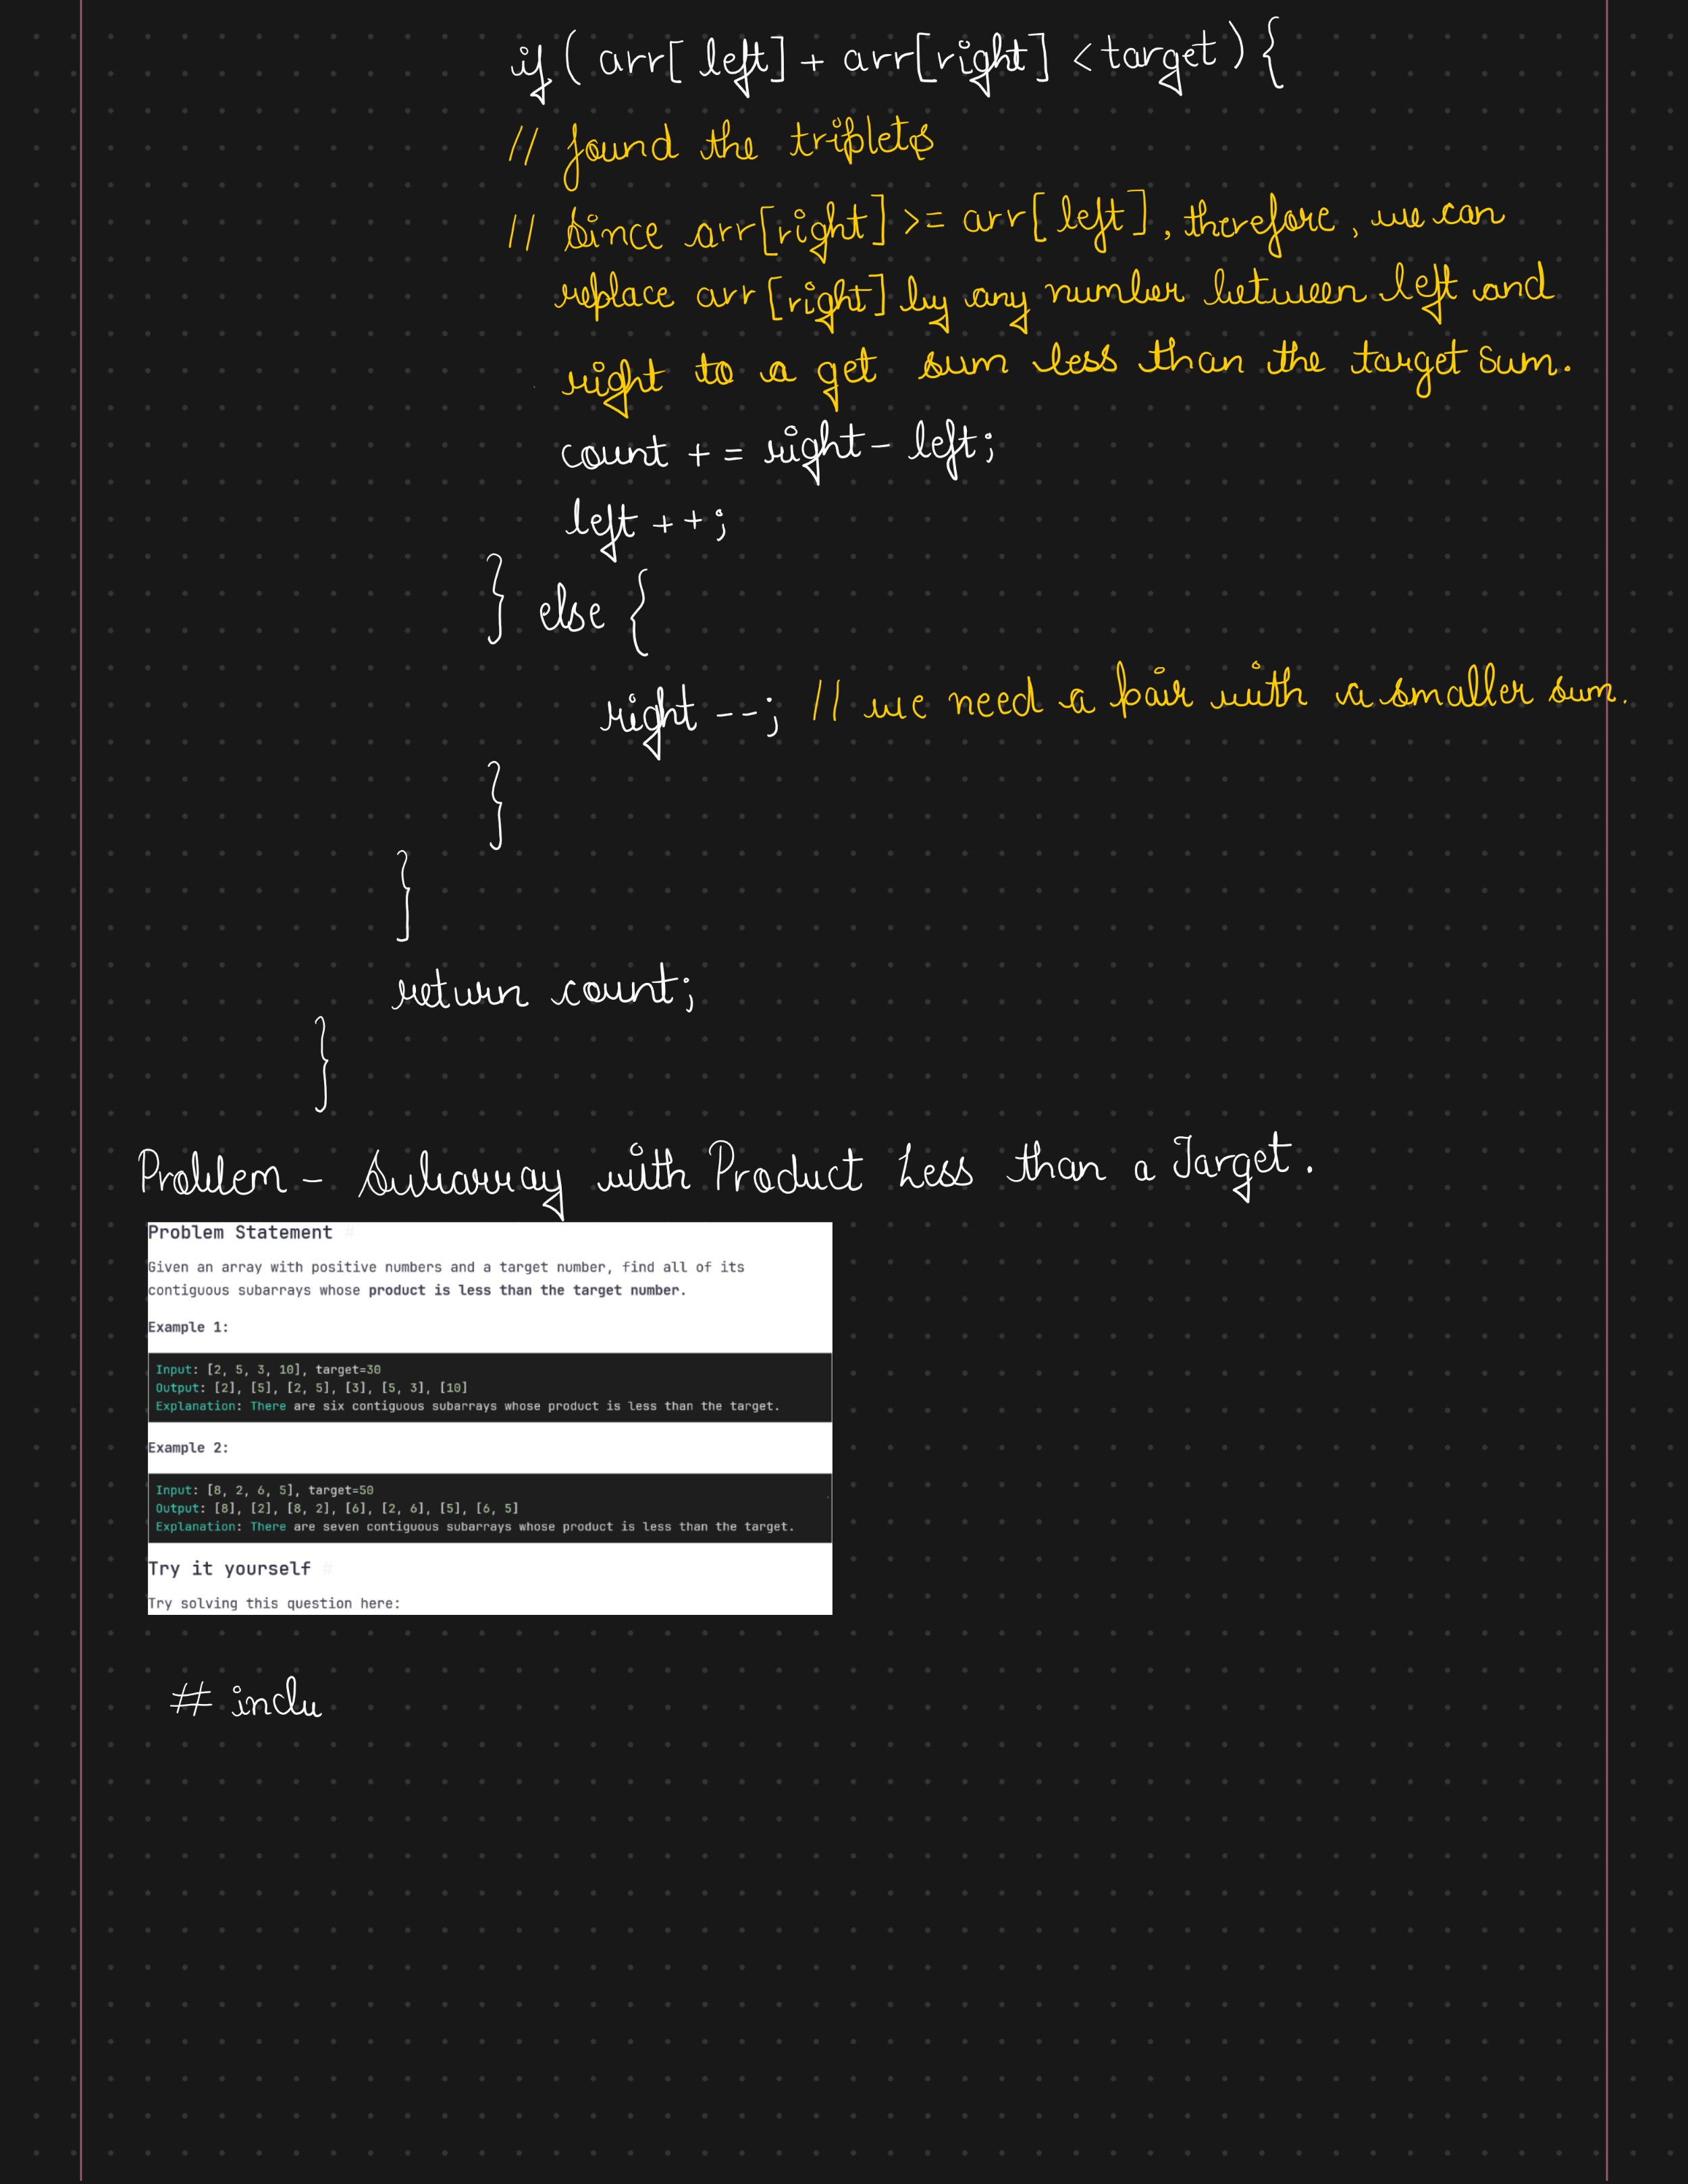 if ( arr[ left] + arr[right] < target ) {
// found the triplets
// Since arr[right] >= arr[ left], therefore, we can
replace arr [right] by any number between left and
right to a get sum less than the target sum.
count + = right - left;
left + +;
} else {
right --; // we need a pair with a smaller sum.
}
}
return count;
}
Problem - Subarray with Product Less than a Target.
Problem Statement #
Given an array with positive numbers and a target number, find all of its
contiguous subarrays whose product is less than the target number.
Example 1:
Input: [2, 5, 3, 10], target=30
Output: [2], [5], [2, 5], [3], [5, 3], [10]
Explanation: There are six contiguous subarrays whose product is less than the target.
Example 2:
Input: [8, 2, 6, 5], target=50
Output: [8], [2], [8, 2], [6], [2, 6], [5], [6, 5]
Explanation: There are seven contiguous subarrays whose product is less than the target.
Try it yourself #
Try solving this question here:
# inclu